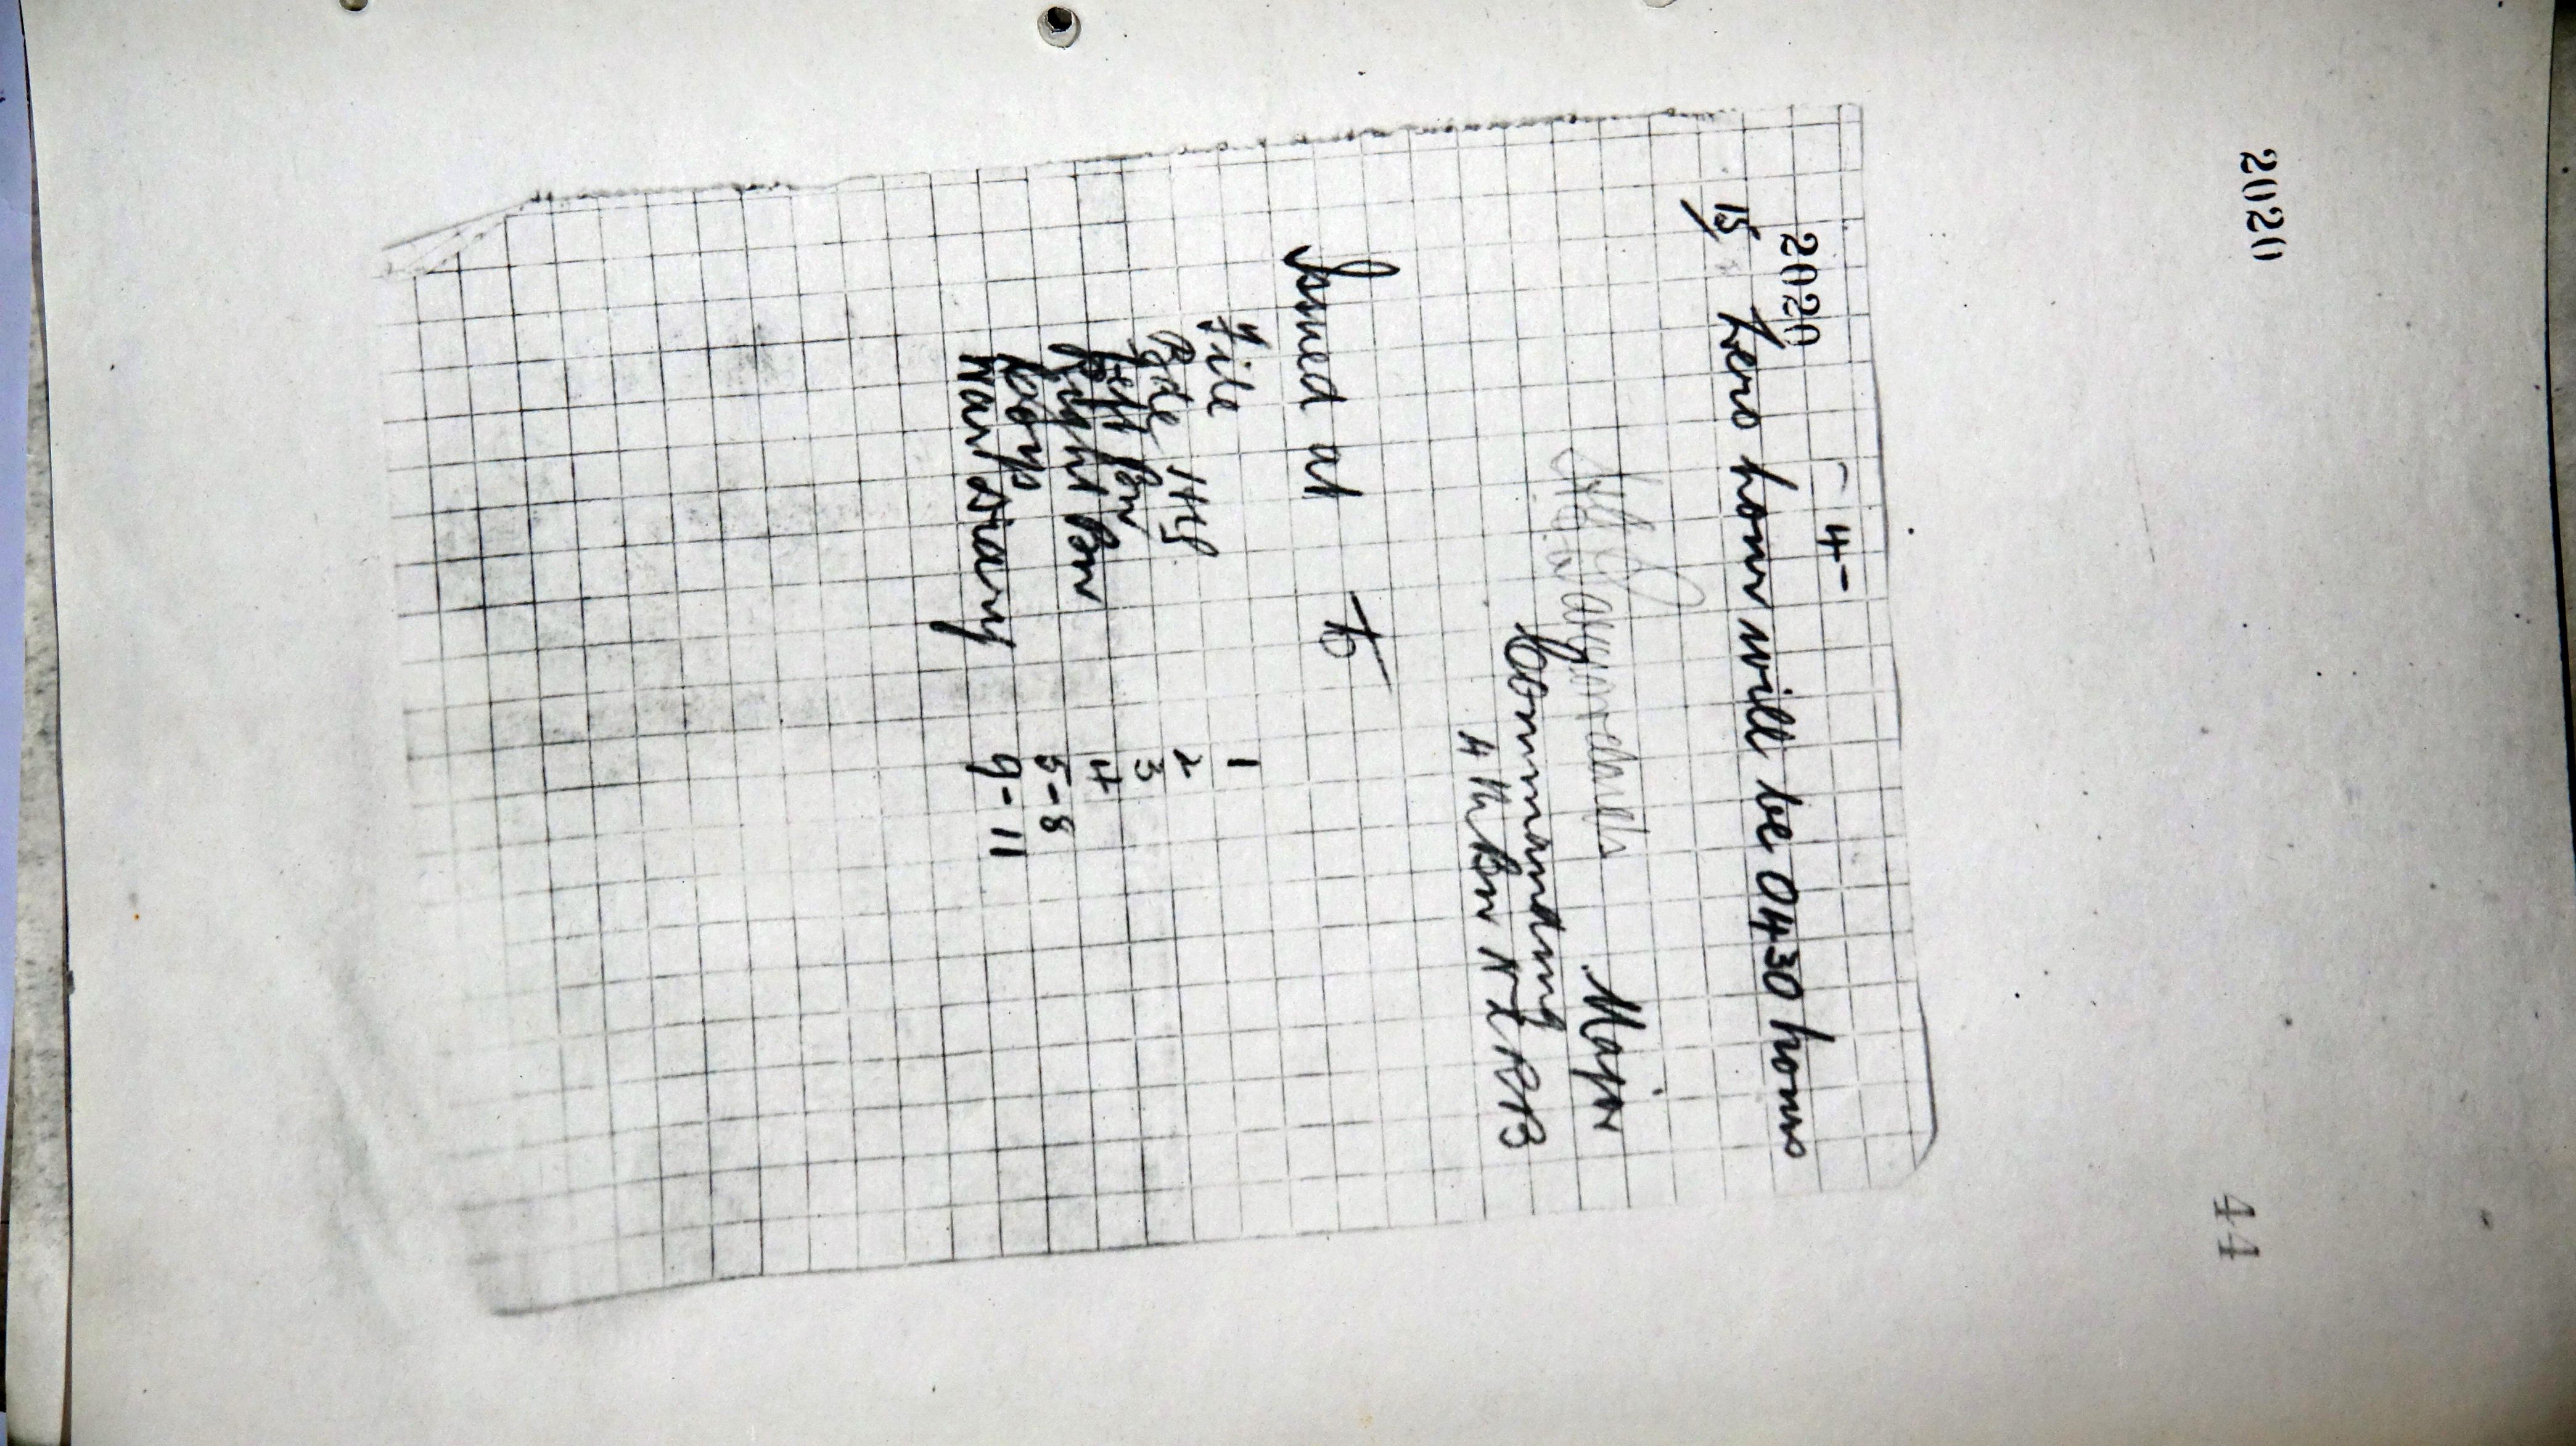 2020
44
- 4 -
2020
15/ Zero hour will be 0430 hours
Major
Commanding
4th Bn NZRB
Issued at to
File 1
Bgde HQ 2
Left Bn 3
Right Bn 4
Coys 5-8
War Diary 9-11